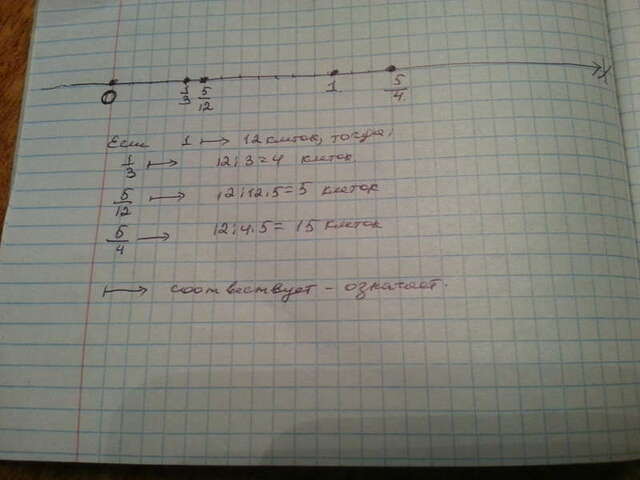 0 1/3 5/12 1 5/4 x
Если 1 ↦ 12 клеток, тогда,
1/3 ↦ 12:3=4 клеток
5/12 ↦ 12:12·5=5 клеток
5/4 ↦ 12:4·5= 15 клеток
↦ соотвествует - означает.